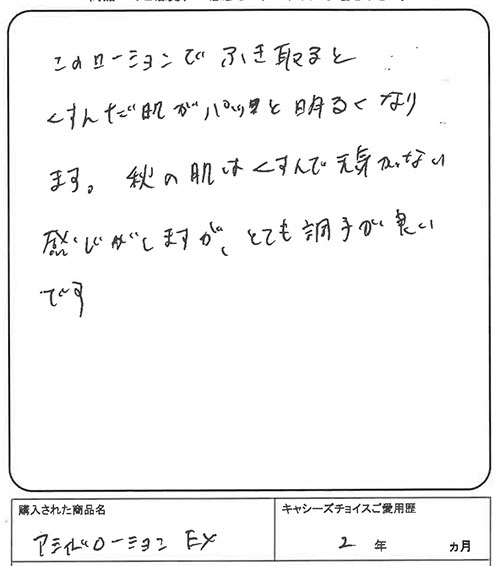 このローションでふき取ると
くすんだ肌がパッと明るくなり
ます。秋の肌はくすんで元気がない
感じがしますが、とても調子が良い
です
購入された商品名
キャシーズチョイスご愛用歴
アシッドローション EX
2 年 カ月